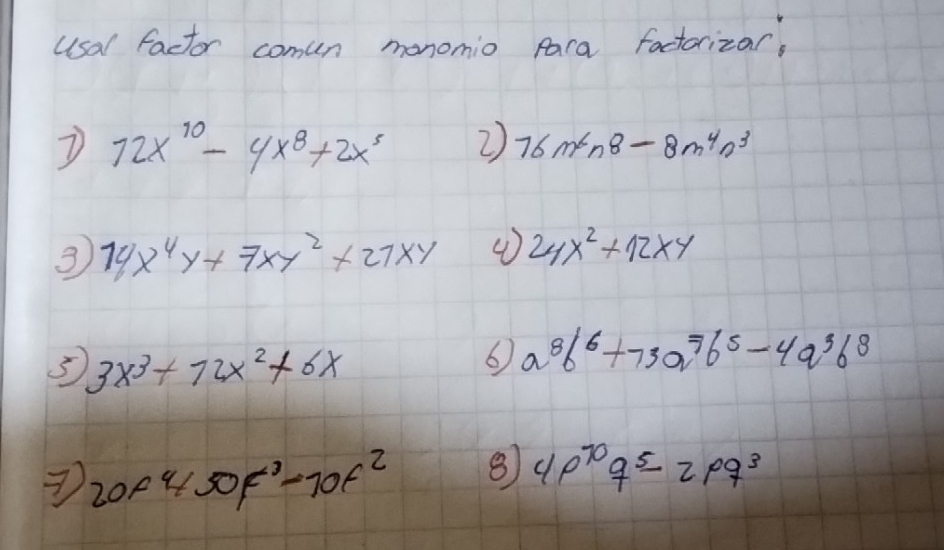 Usar factor comun monomio para factorizar:
1) 12x¹⁰ - 4x⁸ + 2x⁵ 2) 16m⁶n8 - 8m⁴n³
3) 14x⁴y + 7xy² + 21xy 4) 24x² + 12xy
5) 3x³ + 12x² + 6x 6) a⁸b⁶ + 13a⁷b⁵ - 4a³b⁸
7) 20f⁴ + 50f³ - 10f² 8) 4p¹⁰q⁵ - 2pq³